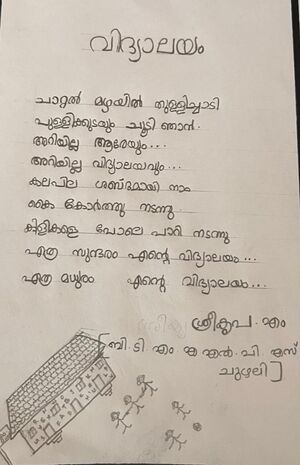 വിദ്യാലയം
ചാറ്റൽ മഴയിൽ തുള്ളിച്ചാടി
പുള്ളിക്കുടയും ചൂടി ഞാൻ.
അറിയില്ല ആരേയും...
അറിയില്ല വിദ്യാലയവും...
കലപില ശബ്ദമായി നാം
കൈ കോർത്തു നടന്നു.
കിളികളെ പോലെ പാറി നടന്നു
എത്ര സുന്ദരം എൻ്റെ വിദ്യാലയം...
എത്ര മധുരം എൻ്റെ വിദ്യാലയം...
ശ്രീകൃപ. എം
[ബി. ടി. എം എ എൽ. പി. എസ്
ചുഴലി]